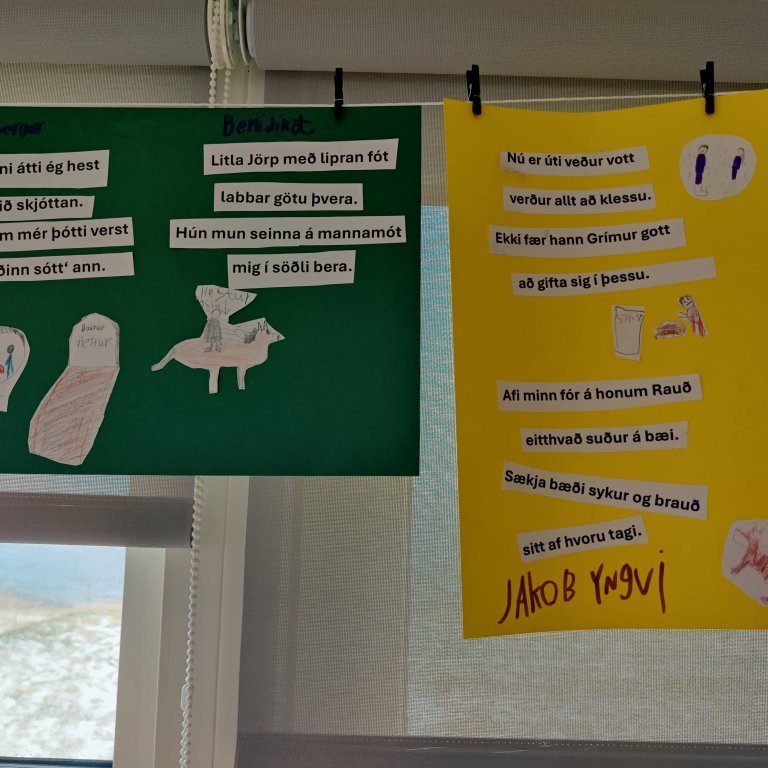 Benidikt
ni átti ég hest
ið skjóttan.
m mér þótti verst
ðinn sótt‘ ann.
Litla Jörp með lipran fót
labbar götu þvera.
Hún mun seinna á mannamót
mig í söðli bera.
Hestur
Hestur
Nú er úti veður vott
verður allt að klessu.
Ekki fær hann Grímur gott
að gifta sig í þessu.
Afi minn fór á honum Rauð
eitthvað suður á bæi.
Sækja bæði sykur og brauð
sitt af hvoru tagi.
JAKOB YNGVI